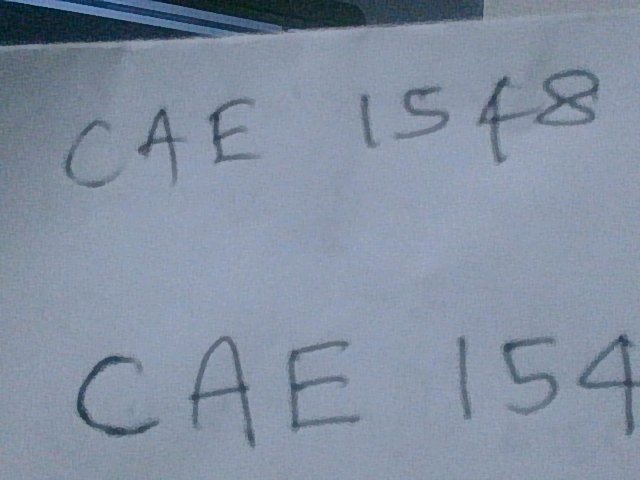 CAE 1548
CAE 154